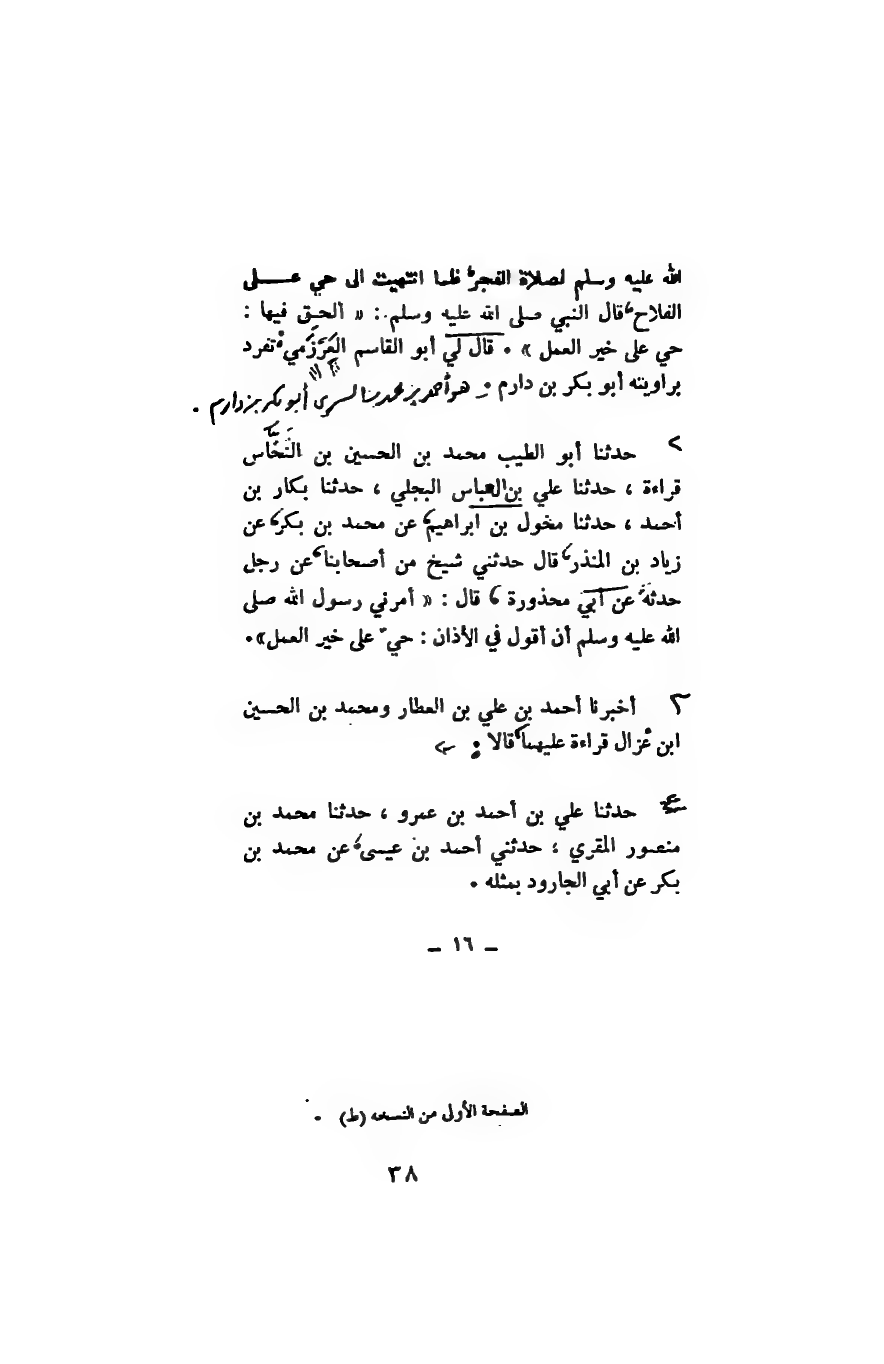 الله عليه وسلم لصلاة الفجر، فلما انتهيت الى حي عـــلى
الفلاح، قال النبي صلى الله عليه وسلم : « ألحق فيها :
حي على خير العمل » . قال لي أبو القاسم العَرْزَمي، تفرد
براويته أبو بكر بن دارم . هو أحمد بن محمد بن السري أبو بكر بن دارم .
٢ حدثنا أبو الطيب محمد بن الحسين بن النَخَّاس
قراءة ، حدثنا علي بن العباس البجلي ، حدثنا بكار بن
أحمد ، حدثنا مخول بن ابراهيم، عن محمد بن بكر، عن
زياد بن المنذر، قال حدثني شيخ من أصحابنا، عن رجل
حدثه عن أبي محذورة ، قال : « أمرني رسول الله صلى
الله عليه وسلم أن أقول في الأذان : حيّ على خير العمل».
٣ أخبرنا أحمد بن علي بن العطار ومحمد بن الحسين
ابن غزال قراءة عليهما، قالا :
حدثنا علي بن أحمد بن عمرو ، حدثنا محمد بن
منصور المقري ؛ حدثني أحمد بن عيسى، عن محمد بن
بكر عن أبي الجارود بمثله .
– ١٦ –
الصفحة الأولى من النسخه (ط) .
٣٨